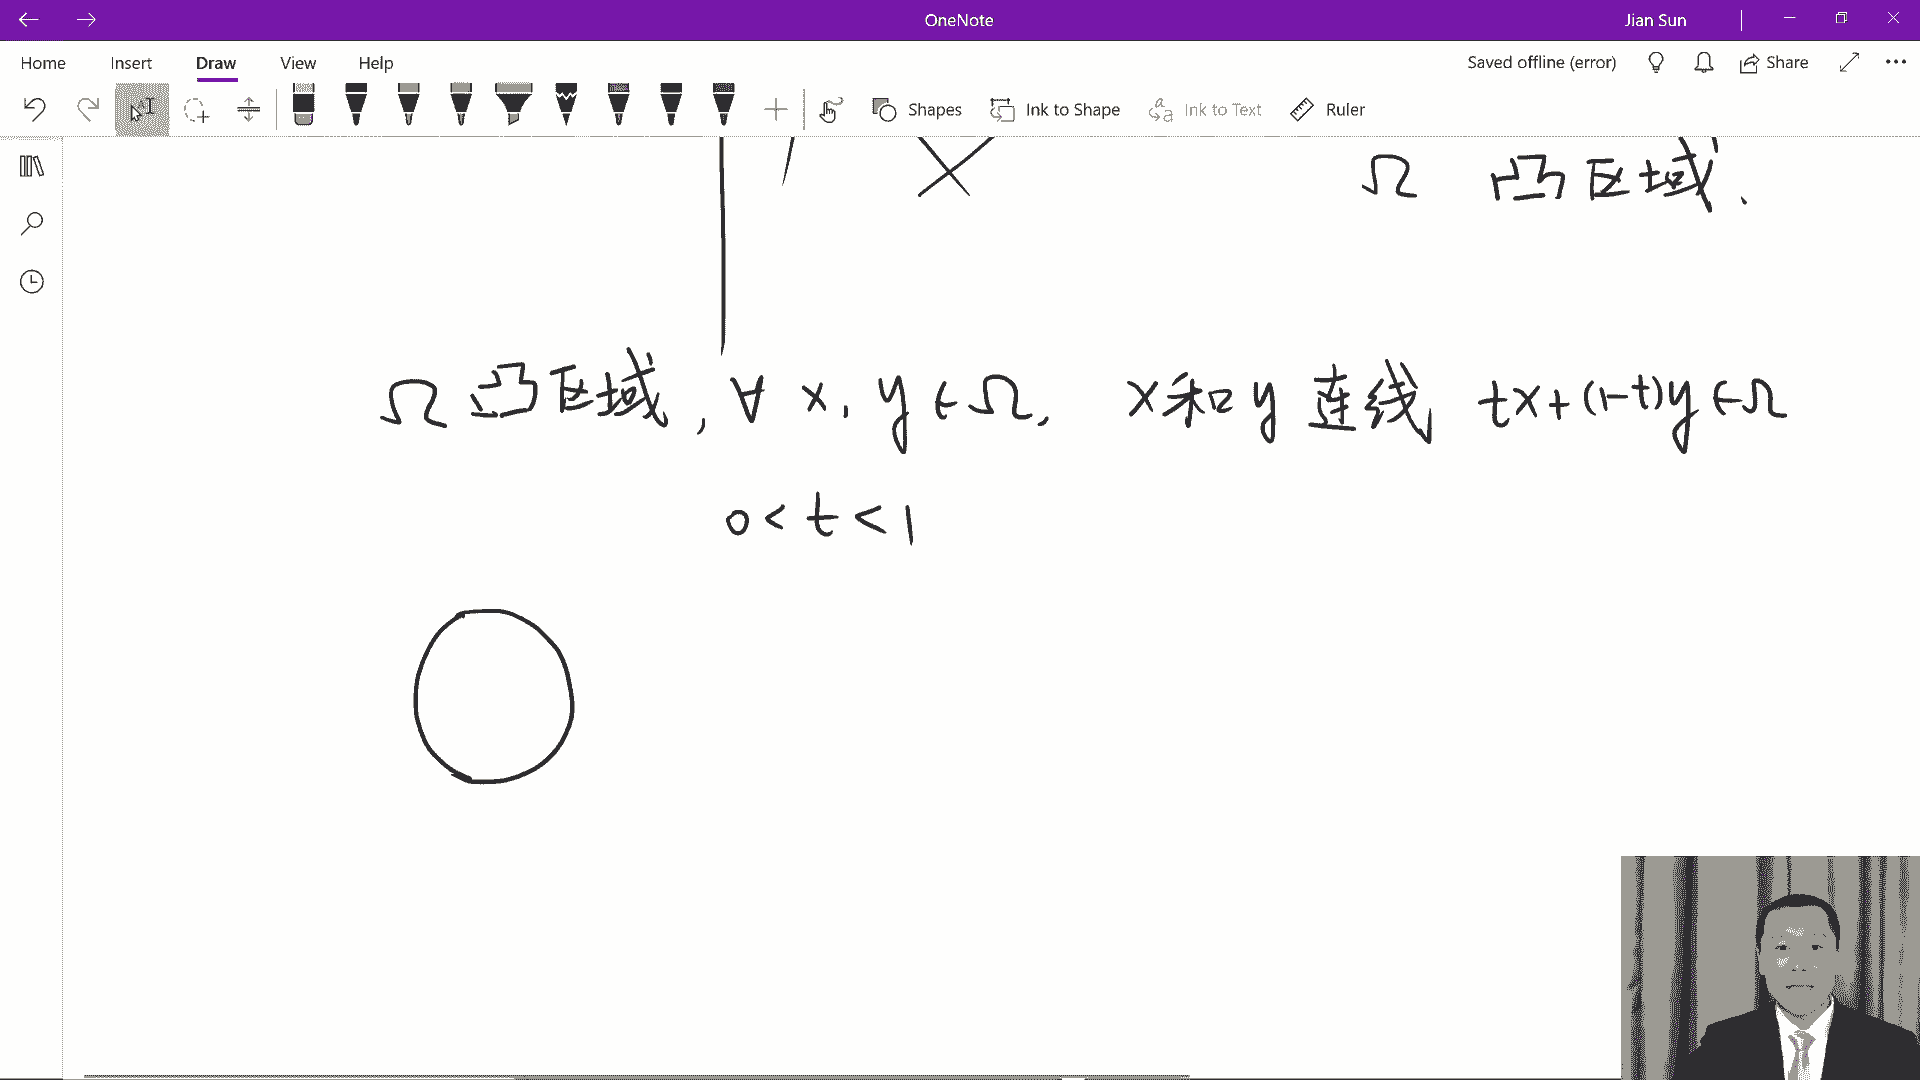 OneNote
Jian Sun
Home Insert Draw View Help
Saved offline (error)
Share
Shapes
Ink to Shape
Ink to Text
Ruler
Ω 凸区域.
Ω 凸区域, ∀ x, y ∈ Ω, x和y 连线 tx+(1-t)y ∈ Ω
0 < t < 1